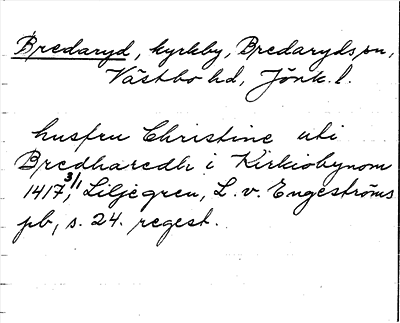 Bredaryd, kyrkby, Bredaryds sn,
Västbo hd, Jönk. l.
hustru Christine uti
Bredharedh i Kirkiobynom
1417 3/1, Liljegren, L. v. Engeströms
pb, s. 24. regest.